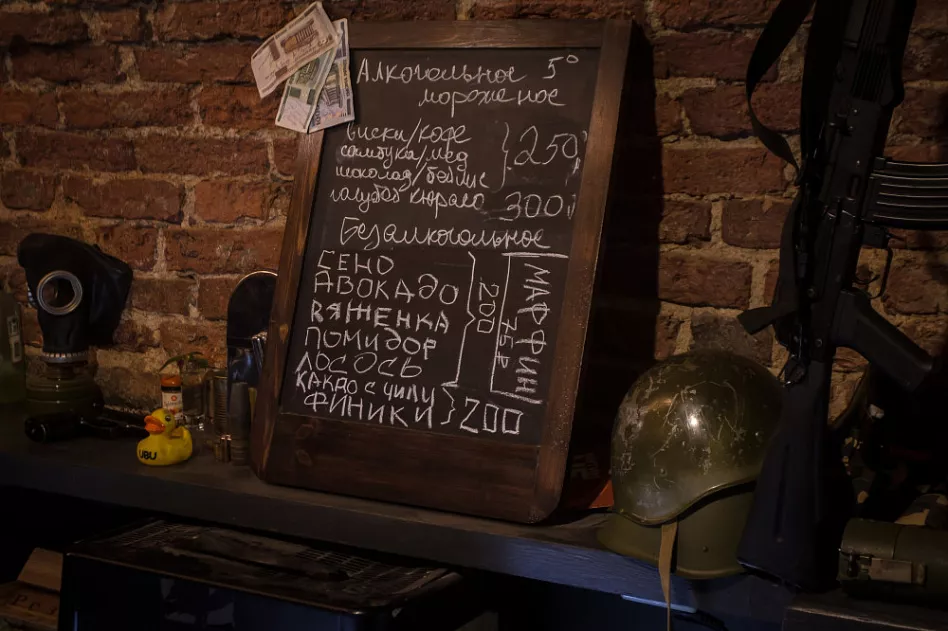 Алкогольное 5°
мороженое
виски/кофе
самбука/мёд
шоколад/бейлис
250
голубой кюрасо 300
Безалкогольное
СЕНО
АВОКАДО
РЯЖЕНКА
ПОМИДОР
ЛОСОСЬ
200
КАКАО С ЧИЛИ
ФИНИКИ
200
МАФФИН
75 Р
UBU